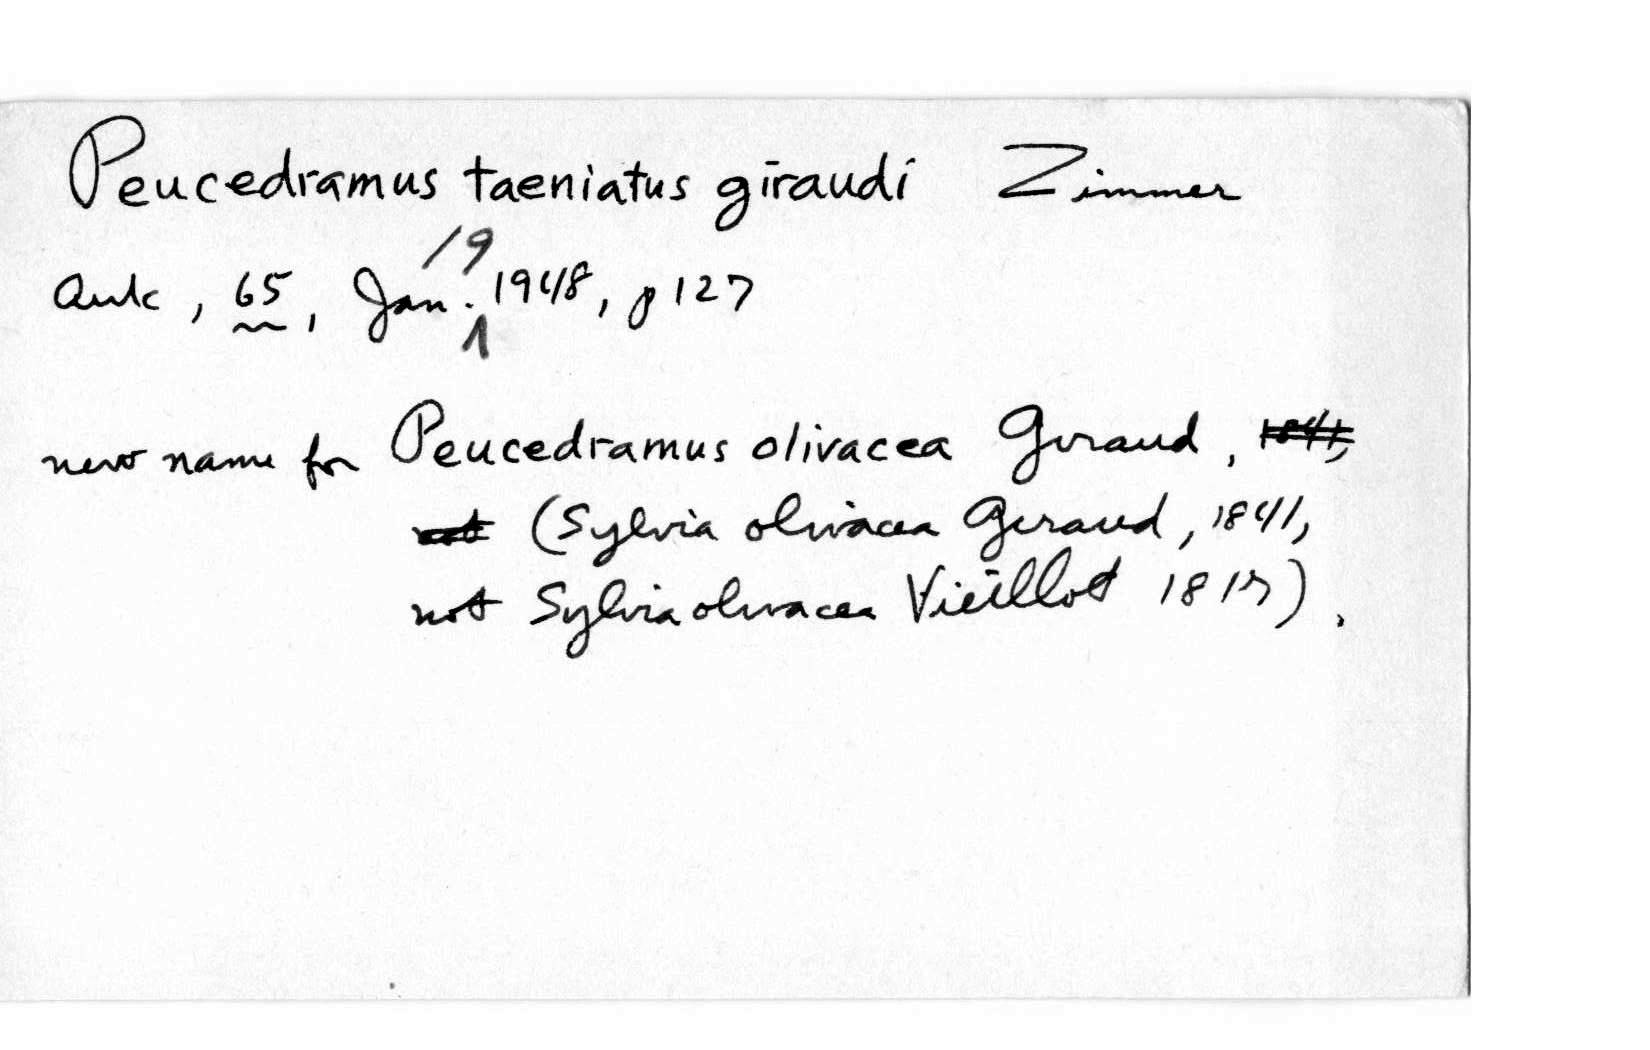 Peucedramus taeniatus giraudi Zimmer
19
Auk, 65, Jan. 1948, p 127
new name for Peucedramus olivacea Giraud, 1841,
not (Sylvia olivacea Giraud, 1841,
not Sylvia olivacea Vieillot 1817).